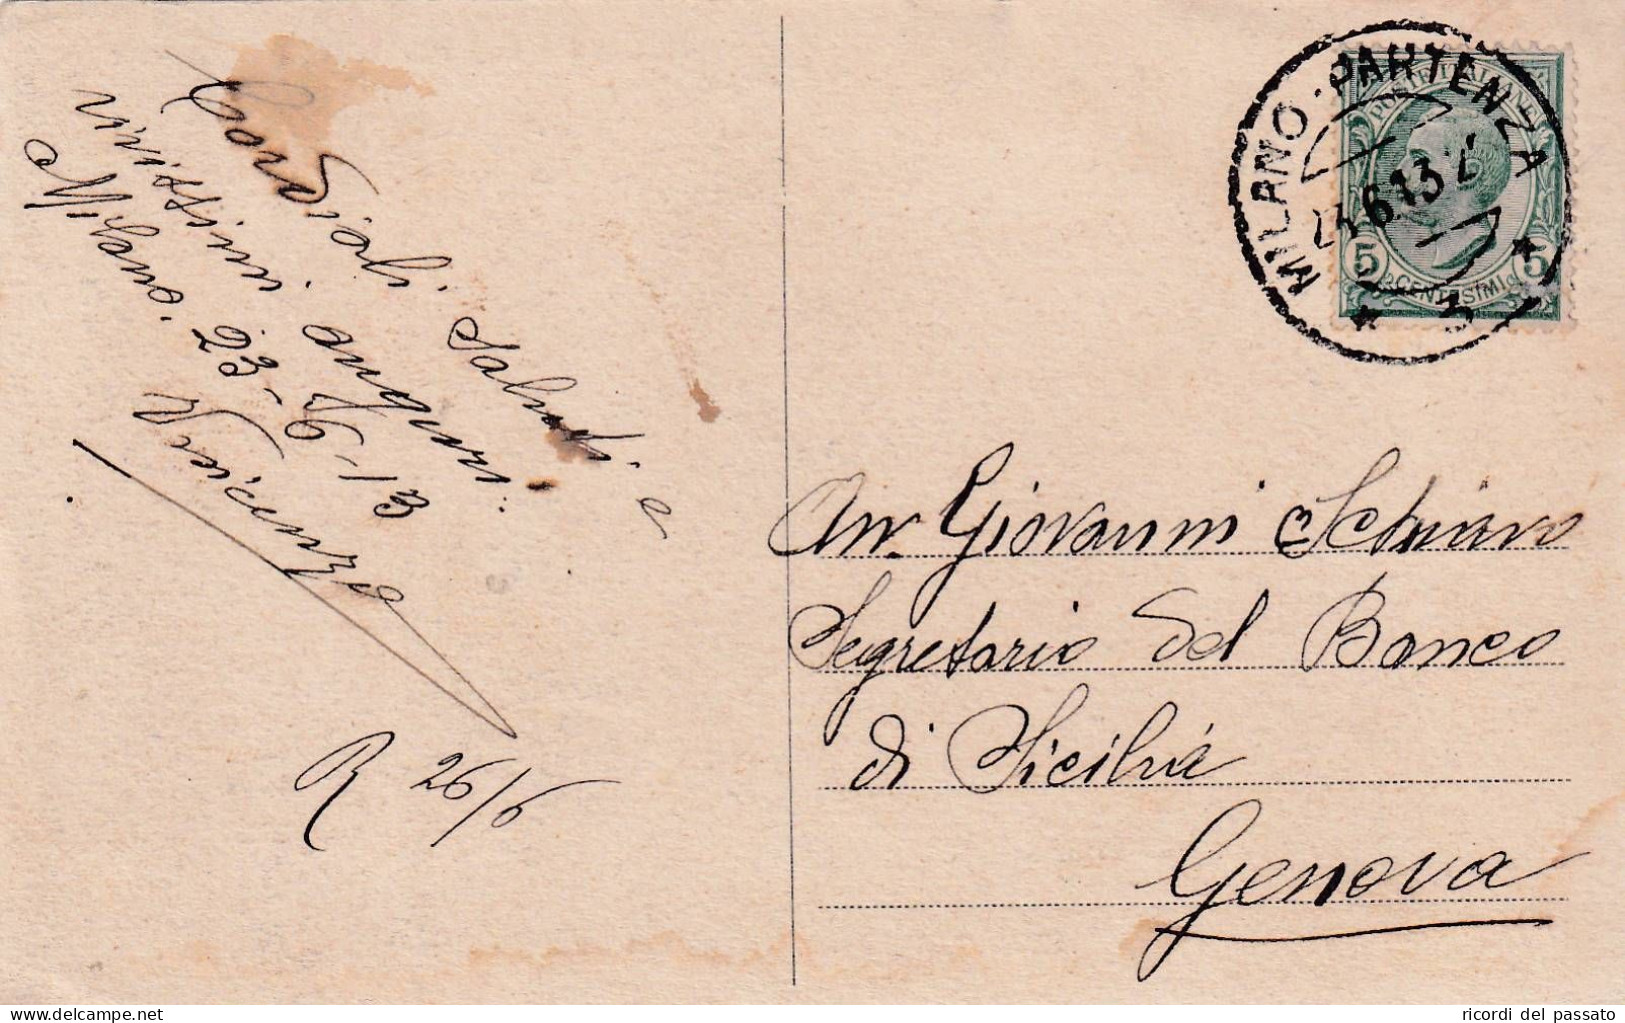 Cordiali saluti e
vivissimi auguri
Milano. 23-6-13
Vincenzo
R 26/6
MILANO - PARTENZA
6.13
3
POSTE ITALIANE
5 CENTESIMI 5
Avv. Giovanni Schiavo
Segretario del Banco
di Sicilia
Genova
delcampe.net
ricordi del passato